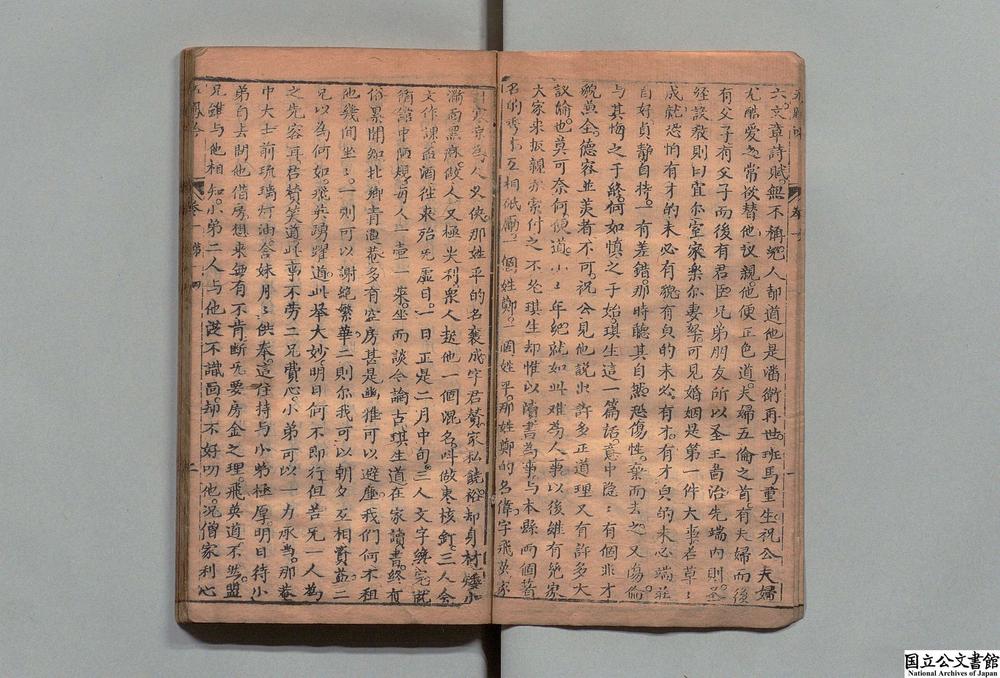 六。文章詩賦。無不稱絕。人都道他是潘衛再世。班馬重生。祝公夫婦
尤酷愛之。常欲替他议親。他便正色道。夫婦五倫之首。有夫婦而後
有父子。有父子而後有君臣兄弟朋友。所以圣王啚治。先端内則。圣
經設教。則曰宜尔室家。樂尔妻孥。可見婚姻是第一件大事。若草〻
成就。恐怕有才的未必有貌。有貌的未必有才。有才貌的未必端莊
自好。貞静自持。一有差錯。那時聽其自然。恐傷性。棄而去之。又傷倫
與其悔之于終。何如慎之于始。琪生這一篇話。意中隐〻有個非才
貌兼全。德容並美者不可。祝公見他説出許多正道理。又有許多大
议論。也莫可奈何。便道。小〻年紀。就如此难為人事。以後雖有鉅家
大家来扳親。亦索付之不允。琪生却惟以讀書為事。与本縣两個著
名的秀才互相砥礪。一個姓鄭。一個姓平。那姓鄭的名偉字飛英。家
人。又侠。那姓平的名襄成字君贊。家私饒裕。却身材矮小
满面黑麻。做人又極尖利。衆人起他一個混名。叫做枣核釘。三人会
文作課。蓝酒往来。殆无虚日。一日正是二月中旬。三人文字綫完。就
衙舘中随規。每人一壺一来。坐而談今論古。琪生道。在家讀書。終有
俗累。聞知北鄉青蓮菴多有空房。甚是幽雅。可以避塵。我們何不租
他幾间坐〻。一則可以謝绝繁華。二則你我可以朝夕互相資益。二
兄以為何如。飛英踴躍道。此举大妙。明日何不即行。但苦无一人為
之先容耳。君贊笑道。此事不劳二兄費心。小弟可以一力承当。那菴
中大士前琉璃灯油。答妹月〻供奉。這住持与小弟極厚。明日待小
弟自去問他借房。想来無有不肯。断无要房金之理。飛英道。不然。盟
兄雖与他相知。小弟二人与他從不識面。却不好叨他。况僧家利心
卷一 第四
二